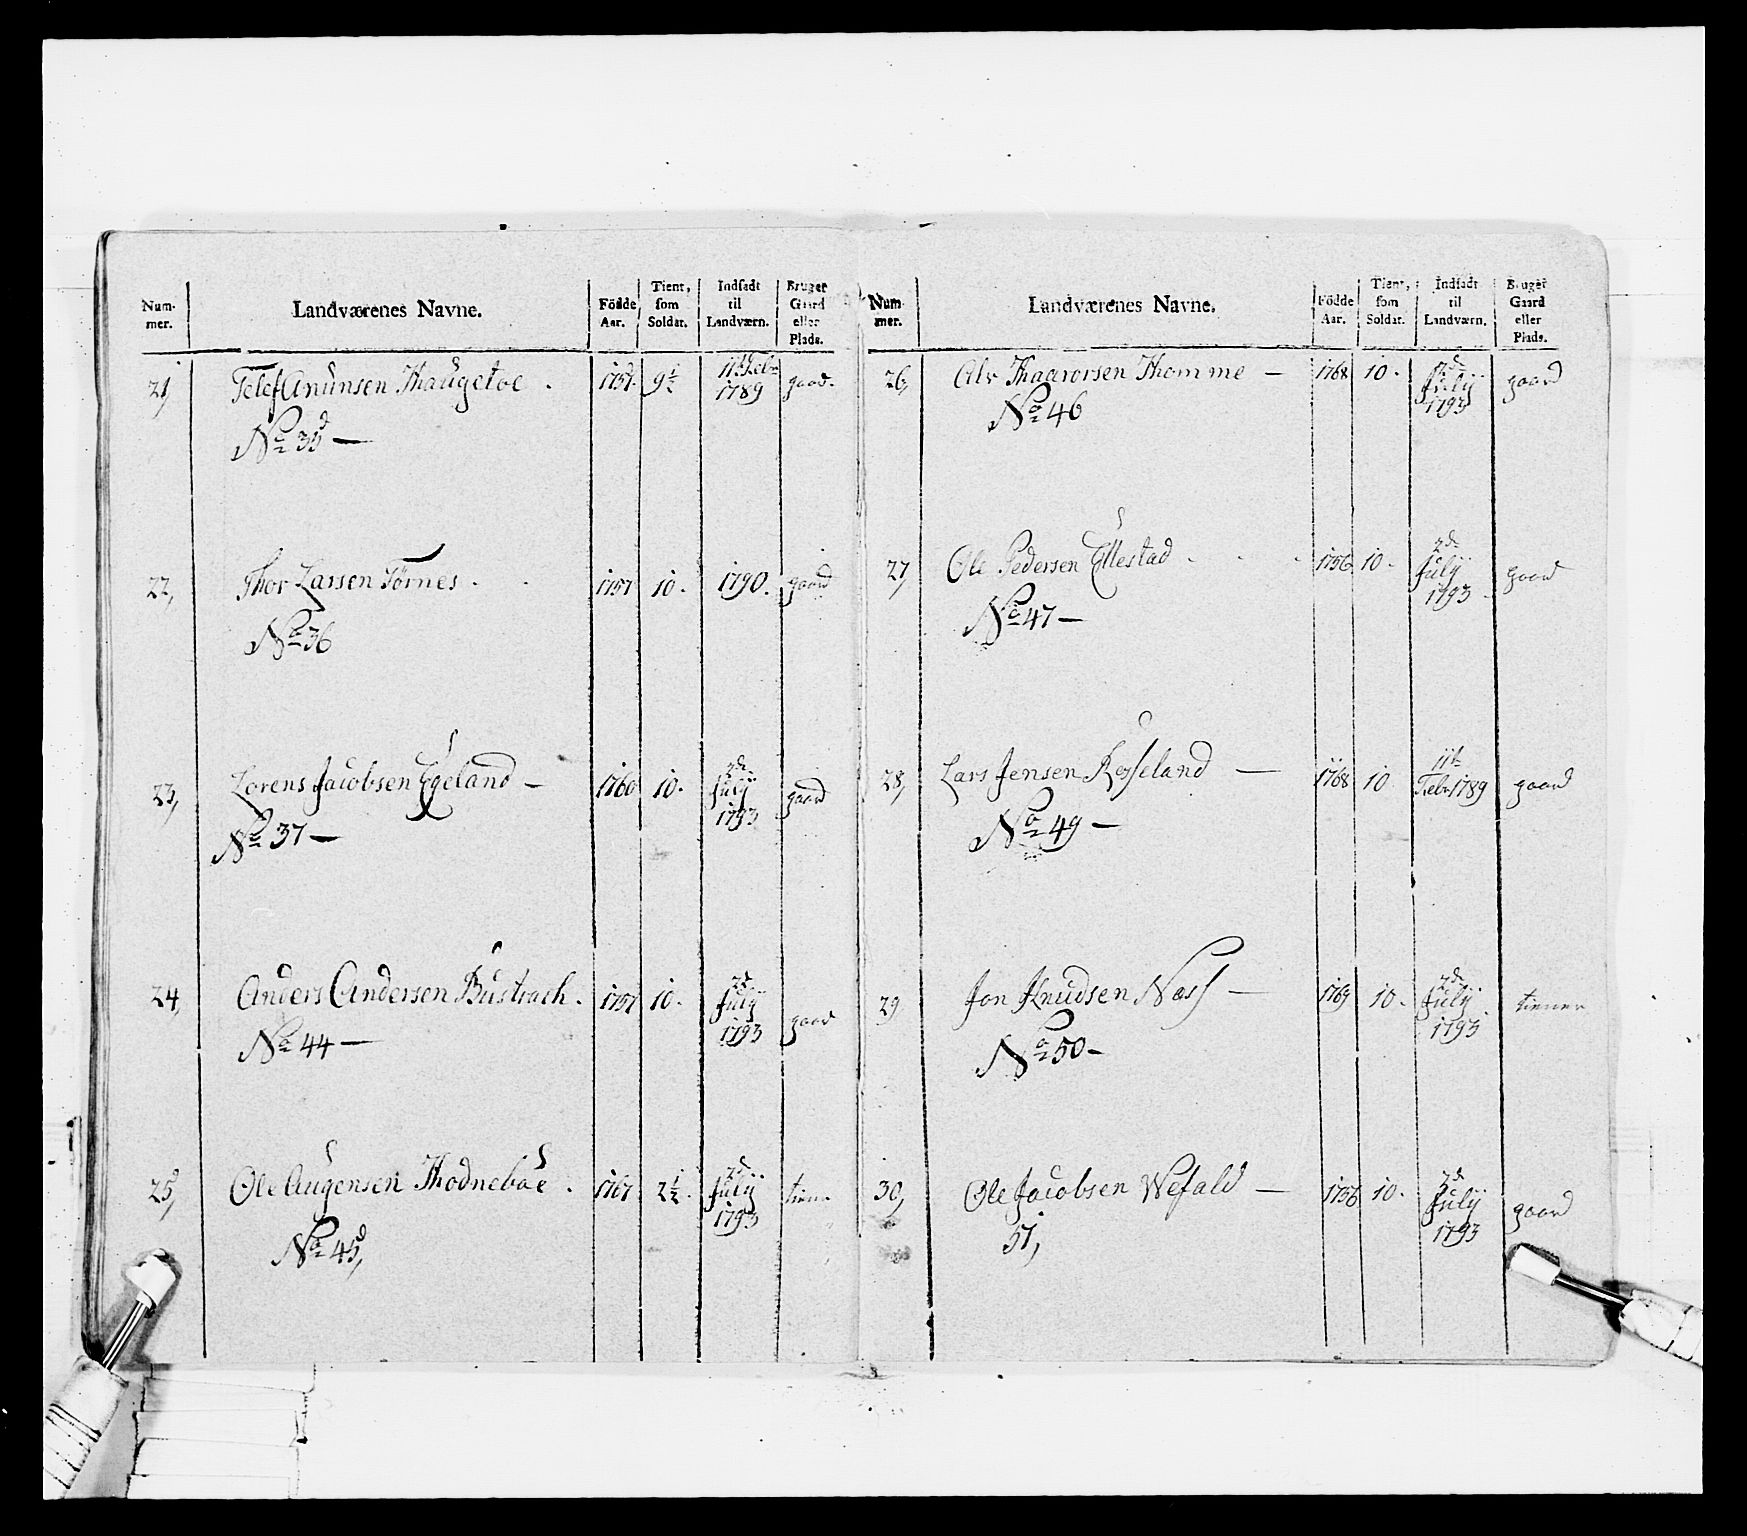 Num-mer. Landværenes Navne. Födde Aar. Tient, som Soldat. Indsadt til Landværn. Bruger Gaard eller Plads.
21, Telef Anunsen Thaugetoe . 1757. 9½ 11te Febr 1789 gaard.
No 35 —
22, Thor Larsen Törnes . 1757 10. 1790. gaard
No 36
23, Lorens Jacobsen Egeland — 1760 10. 2de July 1793 gaard
No 37 —
24, Anders Andersen Bustrach. 1757 10. 2de July 1793 gaard
No 44 —
25, Ole Augensen Thodneboe . 1767 2½. 2de July 1793 tiener
No 45,
Num-mer. Landværenes Navne. Födde Aar. Tient, som Soldat. Indsadt til Landværn. Bruger Gaard eller Plads.
26, Alv Thaarorsen Thomme — 1768 10. 2de July 1793 gaard
No 46
27, Ole Pedersen Ellestad . . . 1756 10. 2de July 1793. gaard
No 47 —
28, Lars Jensen Rosseland — 1768 10 11te Febr 1789 gaard
No 49 —
29 Jon Knudsen Næss — 1769 10. 2de July 1793 tiener
No 50 —
30, Ole Jacobsen Wefald — 1756 10. 2de July 1793 gaard
51,